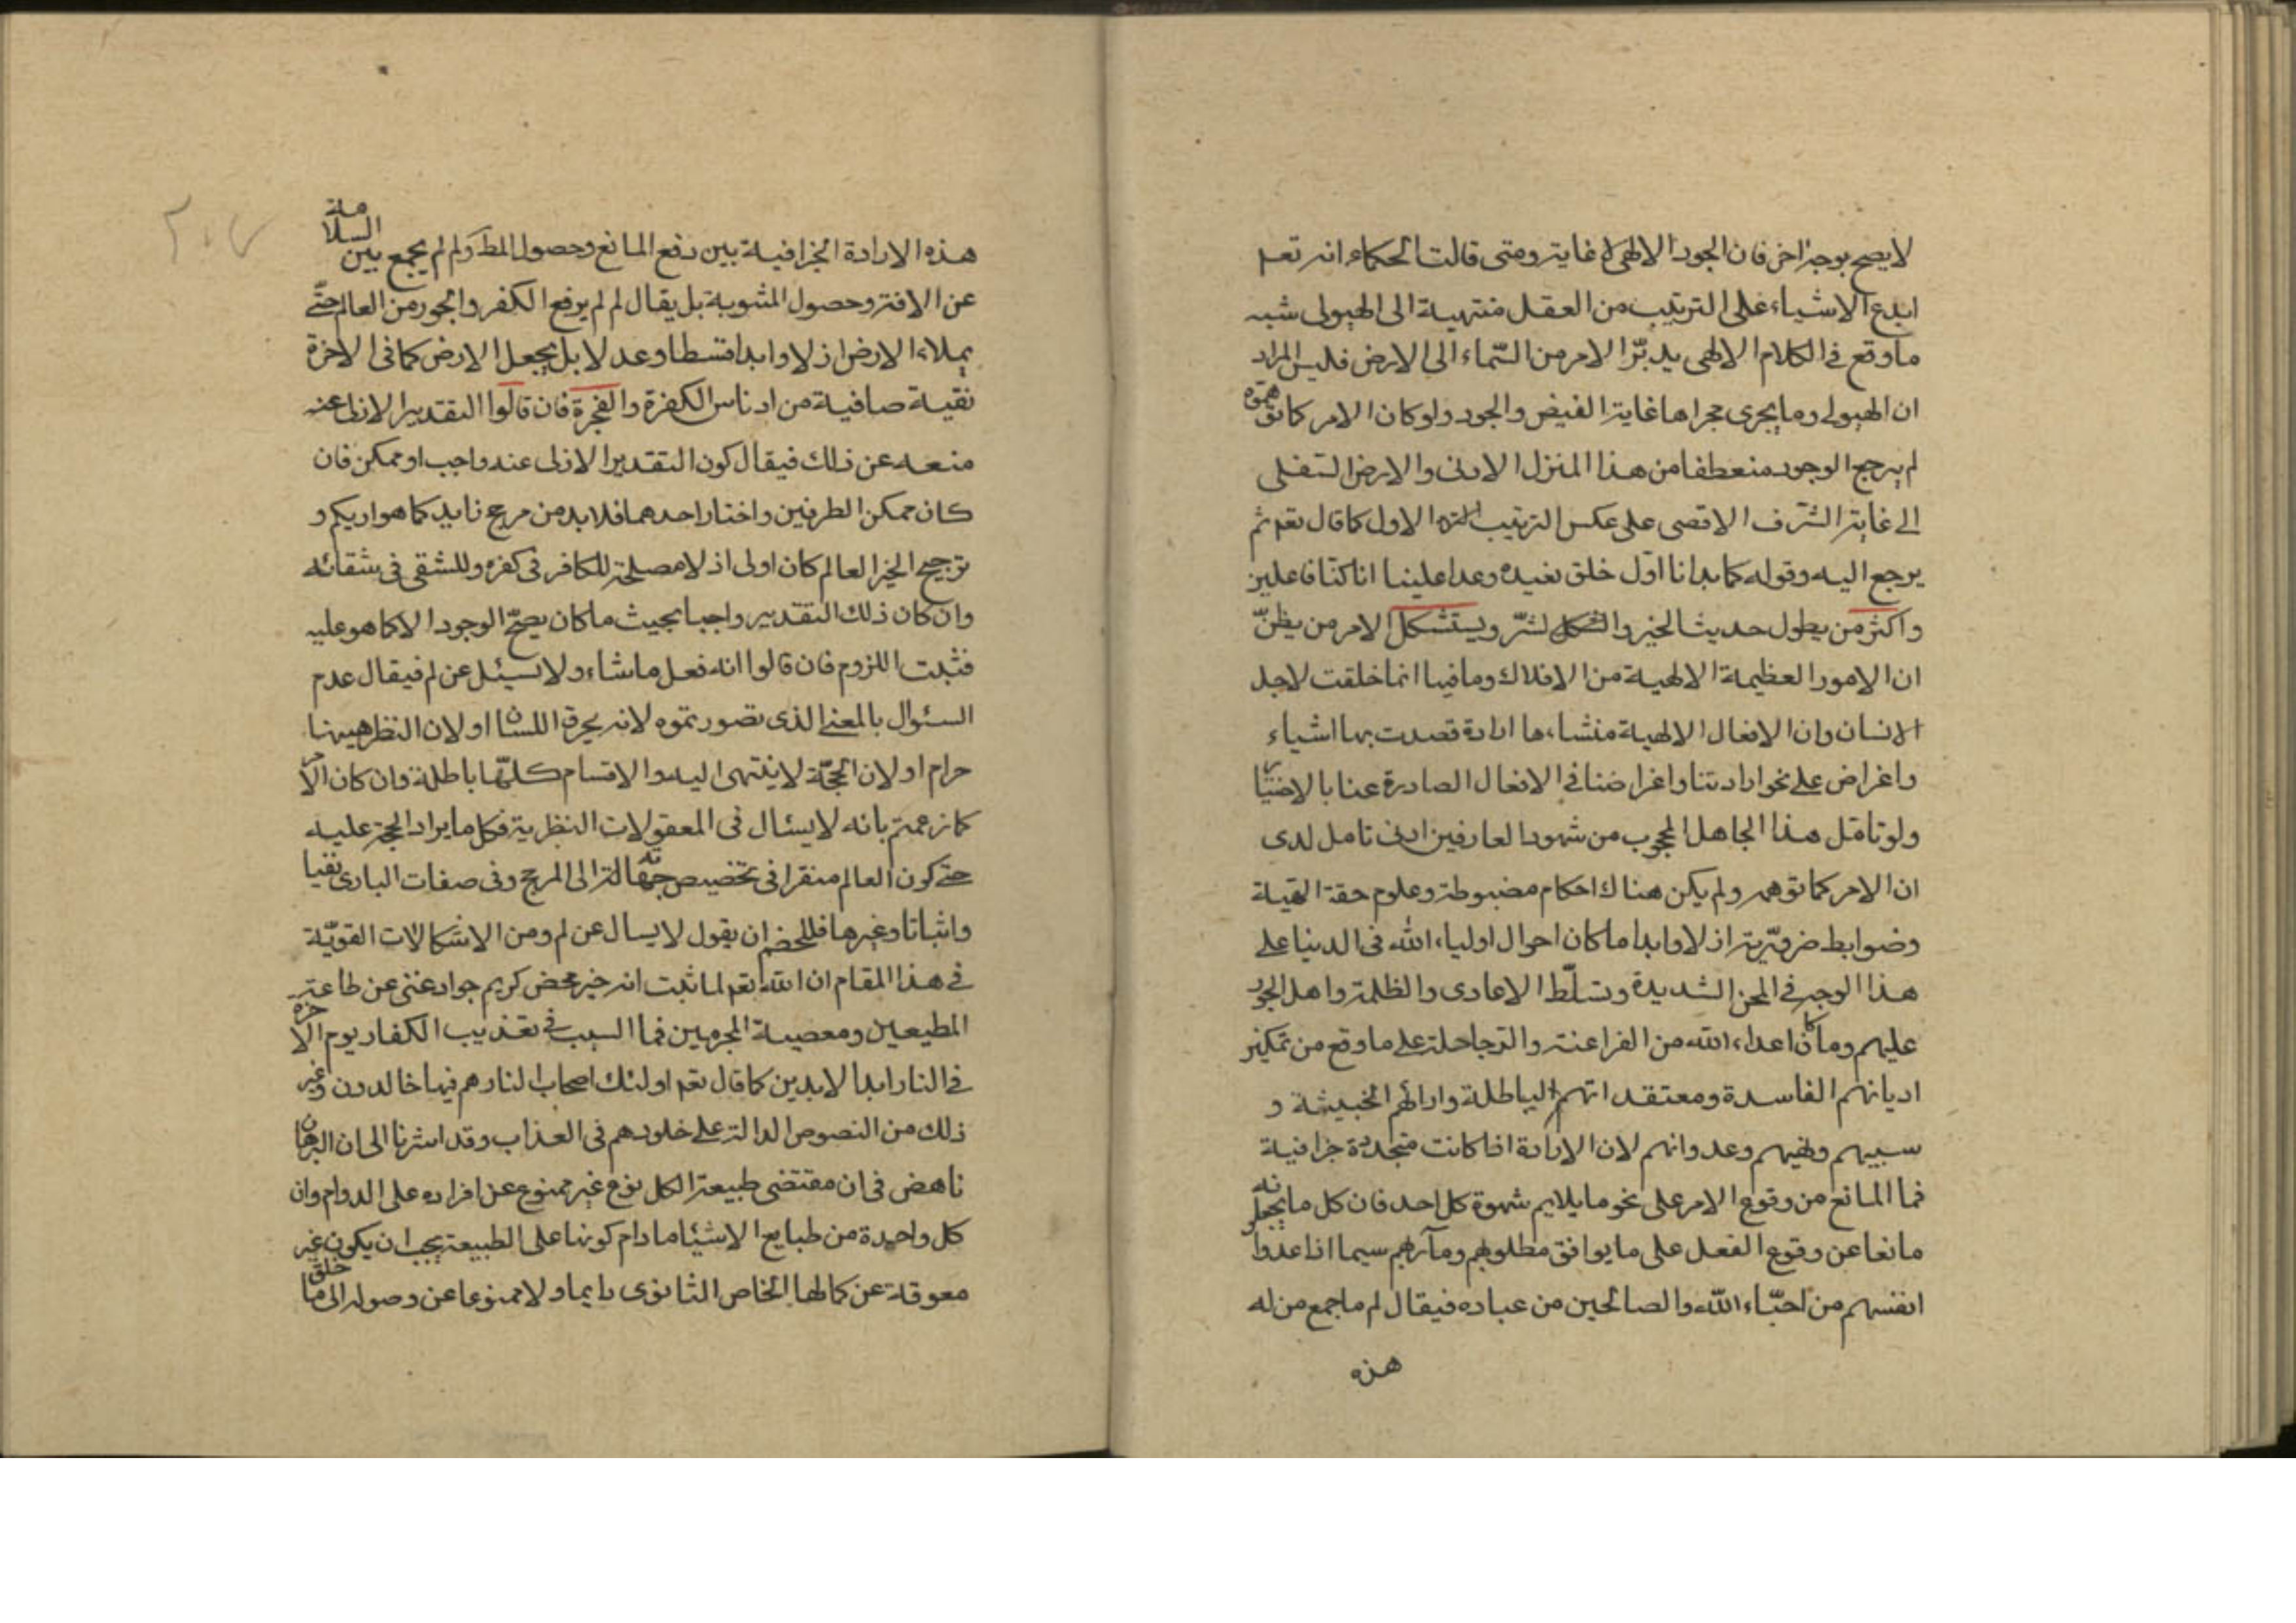 لا يصح بوجه اخر فان الجود الالهى لا غاية له ومتى قالت الحكماء انه تعم
ابدع الاشياء على الترتيب من العقل منتهية الى الهيولى شبه
ما وقع فى الكلام الالهى يدبّر الامر من السّماء الى الارض فليس المراد
ان الهيولى وما يجرى مجراها غاية الفيض والجود ولو كان الامر كما توهموه
لم يرجع الوجود منعطفا من هذا المنزل الادنى والارض السفلى
الى غاية الشّرف الاقصى على عكس الترتيب الاول كما قال تعم ثم
يرجع اليه وقوله كما بدانا اوّل خلق نعيده وعدا علينا انا كنّا فاعلين
واكثر من يطول حديث الخير والشرّ ويستشكل الامر من يظنّ
ان الامور العظيمة الالهية من الافلاك وما فيها انما خلقت لاجل
الانسان وان الافعال الالهية منشاءها ارادة قصدت بها اشياء
واغراض على نحو ارادتنا واغراضنا فى الافعال الصادرة عنا بالاختيار
ولو تامّل هذا الجاهل المحجوب من شهود العارفين ادنى تامل لدى
ان الامر كما توهمه ولم يكن هناك احكام مضبوطة وعلوم حقة الهية
وضوابط ضروريّة ازلا وابدا ما كان احوال اولياء الله فى الدنيا على
هذا الوجه فى المحن الشديدة وتسلّط الاعادى والظلمة واهل الجور
عليهم وما كان اعداء الله من الفراعنة والدجاجلة على ما وقع من تمكين
اديانهم الفاسدة ومعتقداتهم الباطلة وارائهم الخبيثة و
سبيهم ونهبهم وعدوانهم لان الارادة اذا كانت متجددة جزافية
فما المانع من وقوع الامر على نحو ما يلايم شهوة كل احد فان كل ما يجعلونه
مانعا عن وقوع الفعل على ما يوافق مطلوبهم ومآربهم سيما اذا عدوا
انفسهم من احبّاء الله والصالحين من عباده فيقال لم ما جمع من له
هذه
هذه الارادة الجزافية بين دفع المانع وحصول المط ولم لم يجمع بين السلامة
عن الافة وحصول المثوبة بل يقال لم لم يرفع الكفر والجور من العالم حتّى
يملاء الارض ازلا وابدا قسطا وعدلا بل يجعل الارض كما فى الاخرة
نقية صافية من ادناس الكفرة والفجرة فان قالوا التقدير الازلى عنه
منعه عن ذلك فيقال كون التقدير الازلى عنه واجب او ممكن فان
كان ممكن الطرفين واختار احدهما فلابد من مرجح زايد كما هو اريكم و
ترجيح الخير العالم كان اولى اذ لا مصلحة للكافر فى كفره وللشقى فى شقائه
وان كان ذلك التقدير واجبا بحيث ما كان يصحّ الوجود الا كما هو عليه
فثبت اللزوم فان قالوا انه فعل ما شاء ولا يسئل عن لم فيقال عدم
السئوال بالمعنى الذى تصورتموه لانه يحرق اللسان او لان النظر ههنا
حرام او لان الحجّة لا ينتهى اليه والاقسام كلّها باطلة وان كان الامر
كما زعمتم بانه لا يسئال فى المعقولات النظرية فكل ما يراد الحجة عليه
حتى كون العالم مفتقرا فى تخصيص جهاته الى المرجح وفى صفات البارى نفيا
واثباتا وغيرها فللخصم ان يقول لا يسال عن لم ومن الاشكالات القويّة
فى هذا المقام ان الله تعم لما ثبت انه خير محض كريم جواد غنى عن طاعة
المطيعين ومعصية المجرمين فما السبب فى تعذيب الكفار يوم الاخرة
فى النار ابدا لابدين كما قال تعم اولئك اصحاب النار هم فيها خالدون وغير
ذلك من النصوص الدالة على خلودهم فى العذاب وقد اشرنا الى ان البرهان
ناهض فى ان مقتضى طبيعة الكل نوع غير ممنوع عن افراده على الدوام وان
كل واحدة من طبايع الاشيئا ما دام كونها على الطبيعة يجب ان يكون غير
معوقة عن كمالها الخاص الثانوى دايما ولا ممنوعا عن وصوله الى ما خلق
٢٠٧